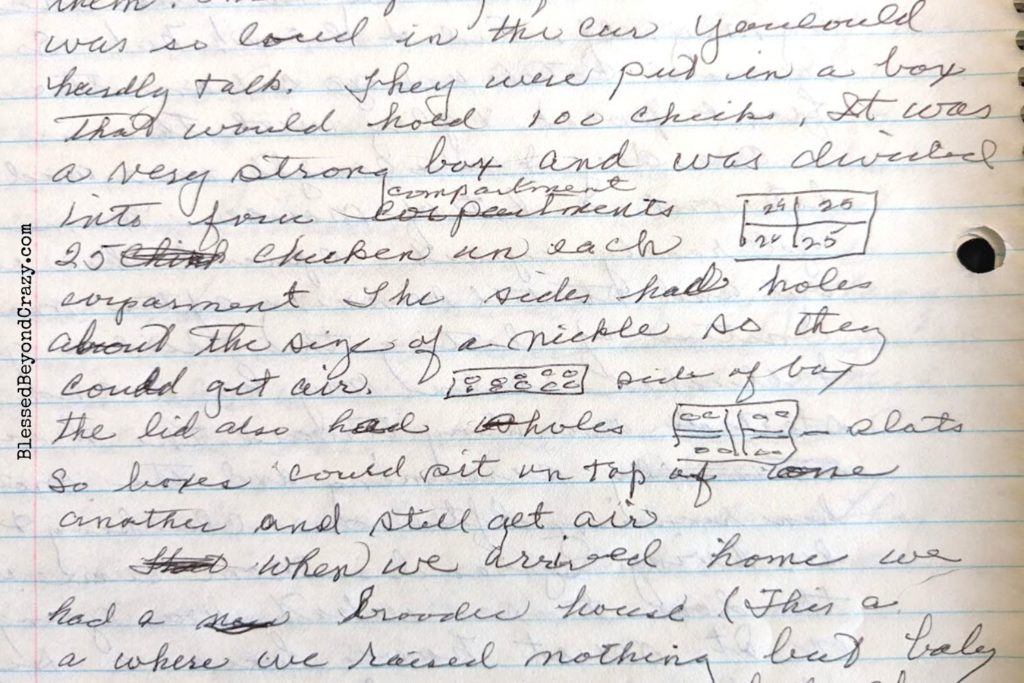 them.
was so loud in the car you could
hardly talk. They were put in a box
that would hold 100 chicks, It was
a very strong box and was divided
compartment
into four corpartments
24 25
25 chicken in each
24 25
corparment The sides had holes
about the size of a nickle so they
could get air. side of box
the lid also had holes - slats
so boxes could sit on top of one
another and still get air
that when we arrived home we
had a brooder house (This a
a where we raised nothing but baby
BlessedBeyondCrazy.com